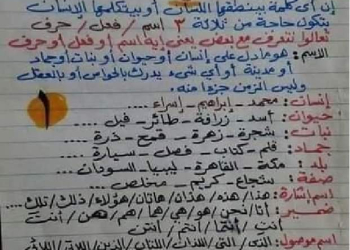 إن أي كلمة بينطقها اللسان أو بيتكلمها الإنسان
بتكون حاجة من ثلاثة ٣ اسم / فعل / حرف
تعالوا نتعرف مع بعض يعني إيه اسم أو فعل أو حرف
الاسم: هو ما دل على إنسان أو حيوان أو نبات أو جماد
أو مدينة أو أي شيء يدرك بالحواس أو بالعقل
وليس الزمن جزءا منه.
١
إنسان: محمد - إبراهيم - إسراء ....
حيوان: أسد - زرافة - طائر - فيل ....
نبات: شجرة - زهرة - قمح - ذرة ....
جماد: قلم - كتاب - فصل - سيارة ....
بلد: مكة - القاهرة - ليبيا - السودان ....
صفة: شجاع - كريم - مخلص ....
اسم إشارة: هذا / هذه / هذان / هاتان / هؤلاء / ذلك / تلك
ضمير: أنا / نحن / هو / هي / هما / هم / هن / أنت
أنتِ / أنتما / أنتم / أنتن
اسم موصول: الذي / التي / اللذان / اللتان / الذين